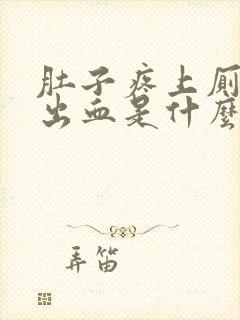 肚子疼上厕
出血是什麼
弄笛